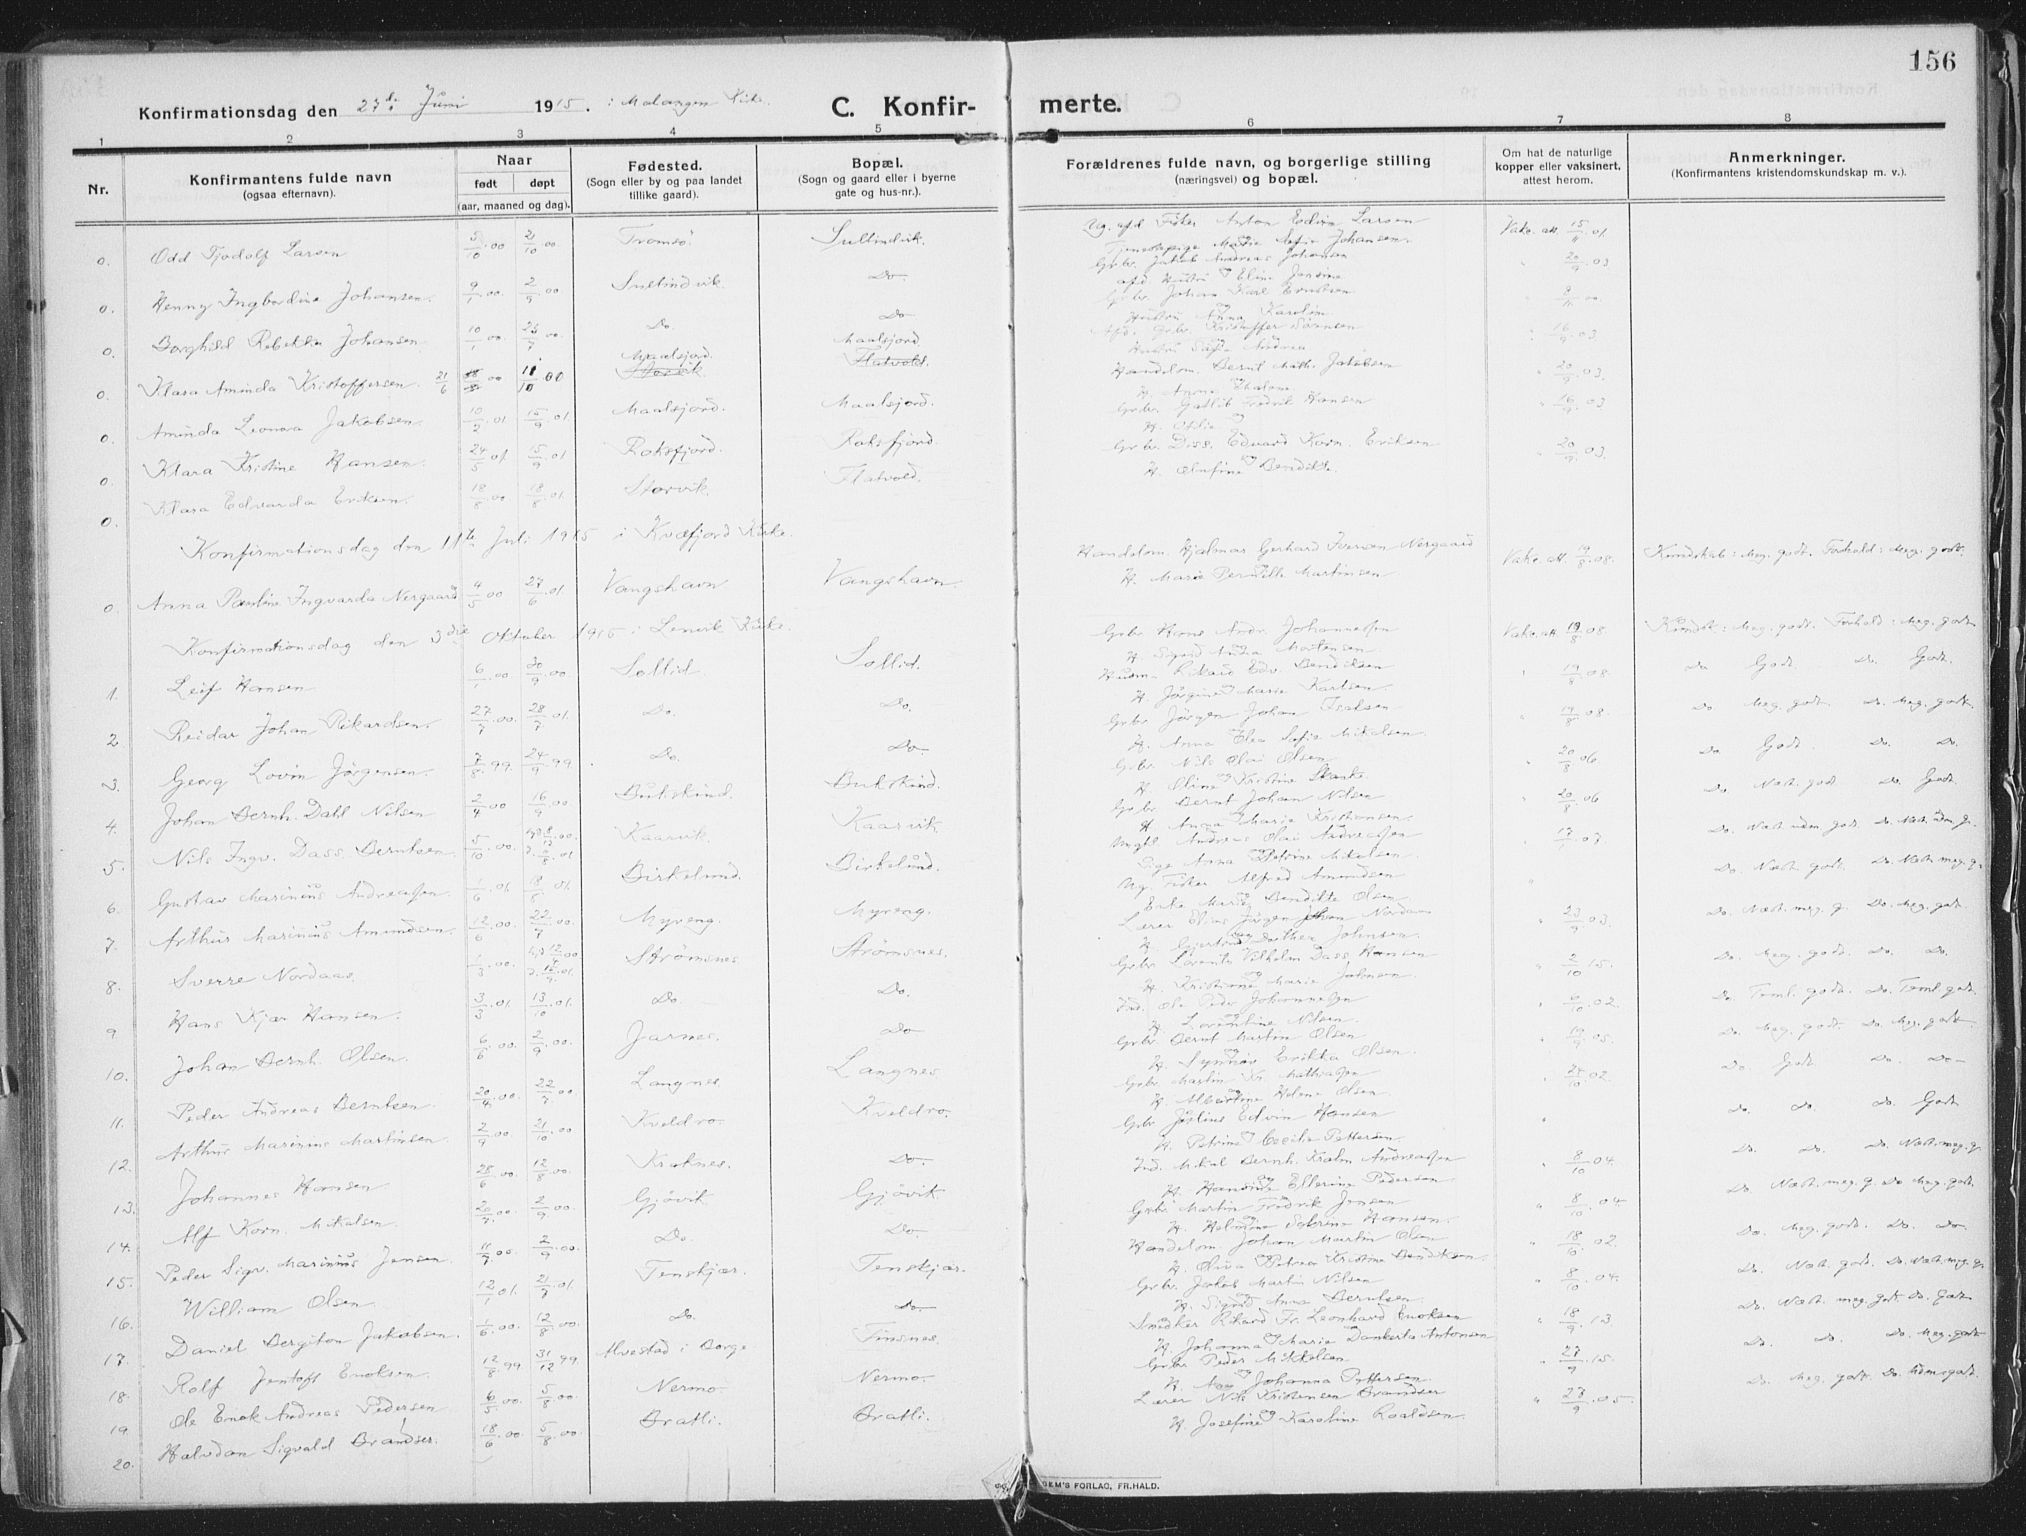 156
Konfirmationsdag den 27de Juni 1915. i Malangen Kirke. C. Konfir- merte.
1 2 3 4 5 6 7 8
Nr. Konfirmantens fulde navn (ogsaa efternavn). Naar født døpt (aar, maaned og dag). Fødested. (Sogn eller by og paa landet tillike gaard). Bopæl. (Sogn og gaard eller i byerne gate og hus-nr.). Forældrenes fulde navn, og borgerlige stilling (næringsvei) og bopæl. Om hat de naturlige kopper eller vaksinert, attest herom. Anmerkninger. (Konfirmantens kristendomskundskap m. v.).
0. Odd Tjodolf Larsen 5/10 00 2/10 00 Tromsö. Sultindvik. Ug. afd. Fisker Anton Edvin Larsen Vakc. att. 15/11 01
Tjenestepige Marie Sofie Johansen.
0. Henny Ingbordine Johansen. 9/1 00 2/9 00 Sultindvik. Do. Grbr. Jakob Andreas Johansen 20/9 03
afd. Hustru Eline Jensine
0. Borghild Rebekka Johansen 10/1 00 Do. Do Grbr. Johan Karl
Hustru Anna Karoline
0. Klara Aminda Kristoffersen. 21/6 00 11/10 00 Maalsjord. Storvik Maalsjord. Flatvold. Afd. Grbr. Kristoffer Sørensen 16/9 03
Hustru Sofie Andrea
0. Aminda Leonora Jakobsen. 10/2 01 15/9 01 Maalsjord. Maalsjord. Handelsm. Bernt Math. Jakobsen 20/9 03.
H. Anna
0. Klara Kristine Hansen. 24/5 01. 15/9 01 Roksfjord. Roksfjord. Grbr. Gotlib Fredrik Hansen 16/9 03
H. Otilie
0. Klara Edvarda Eriksen. 18/8 00 18/8 01. Storvik. Flatvold. Grbr. Diss. Edvard Korn. Eriksen 20/9 03.
H. Olufine Bendikte.
Konfirmationsdag den 11te Juli 1915 i Kvæfjord Kirke.
0. Anna Pauline Ingvarda Nergaard 4/5 00 27/6 01. Vangshavn Vangshavn. Handelsm. Hjalmar Gerhard Iversen Nergaard Vakc. att. 19/8 08. Kundskab: Meg. godt. Forhold: Meg. godt.
H. Marie Pernille Martinsen
Konfirmationsdag den 3die Oktober 1915 i Lenvik Kirke.
1. Leif Hansen 6/1 00 30/9 00 Sollid. Sollid. Grbr. Hans Andr. Johannessen Vakc. att. 19/8 08. Kundsk: Meg. godt. Forhold: Meg. godt
H. Sigrid Anna Mortensen
2 Reidar Johan Rikardsen. 27/7 00. 28/7 01. Do. Do. Husm. Rikard Edv. Bendiksen 19/8 08. Do Godt. Do. Godt.
H. Jörgine Marie Karlsen.
3. Georg Lovin Jørgensen. 7/8 99. 24/9 99. Do. Do Grbr. Jörgen Johan Isaksen 19/8 08. Do Meg. godt. Do. Meg. godt.
H. Anna Elea Sofie Mikalsen.
4. Johan Bernh. Dahl Nilsen 2/4 00 16/9 00. Bukskind. Bukskind. Grbr. Nils Olai Olsen 20/8 06 Do Godt. Do. Do.
H. Oline Kristine Skarke
5. Nils Ingv. Dass. Berntsen. 5/10 00. Kaarvik. Kaarvik. Grbr. Bernt Johan Nilsen 20/8 06 Do. Næst. godt Do. Godt.
H. Anna Marie Kristensen
6. Gustav Marinius Andreassen 1/6 01. 18/8 01. Birkelund. Birkelund. Ungk. Andreas Olai Andreassen Do. Næst. uden godt. Do. Næst. uden g.
Pige Anna Petrine Mikalsen.
7. Arthur Marinius Amundsen. 12/6 00. 22/7 00. Myreng. Myreng. Ug. Fisker Alfred Amundsen Do. Næst. godt. Do. Næst. meg. g.
Enke Marie Bendikte Olsen
8. Sverre Nordaas. 1/3 00. Strømsnes Strømsnes. Lærer Elias Jørgen Johan Nordaas 23/9 03. Do. Næst. meg. g. Do. Meg. godt.
H. Gjertrud Dorthea Johnsen.
9 Hans Kjær Hansen. 3/3 01. 13/10 01. Do. Do. Grbr. Lorentz Vilhelm Dass Hansen 2/10 15. Do. Meg. godt. Do. Do.
H. Kristianne Marie Johnsen
10. Johan Bernh. Olsen. 6/6 00. 2/9 00. Jarnes. Do Ind. Ole Peder Johannessen 6/10 02. Do. Teml. godt. Do. Teml. godt.
H. Lorentine Nilsen.
11. Peder Andreas Berntsen. 20/4 00. 22/7 00 Langnes Langnes Grbr. Bernt Martin Olsen 19/9 05. Do. Meg. godt. Do. Meg. godt
H. Synnøv Erikka Olsen.
12. Arthur Marinius Martinsen. 2/9 00. 21/10 00 Kveldro. Kveldro. Grbr. Martin Kr. Mathiassen 24/10 02. Do Godt Do. Do
H. Albertine Helene Olsen.
13. Johannes Hansen 28/6 00. 12/8 00. Kraknes. Do. Grbr. Julius Edvin Hansen Do. Do. Do. Godt
H. Petrine Cecilie Pettersen.
14. Alf Korn. Mikalsen. 20/7 00. 2/9 00. Gjövik Gjövik. Ind. Mikal Bernh. Krahn Andreassen 8/10 04. Do. Do. Do. Næst. meg. g.
H. Hansine Ellerine Pedersen
15. Peder Sigv. Marinius Jensen. 11/7 00. 2/9 00. Do. Do. Grbr. Martin Fredrik Jensen 8/10 04. Do. Næst. meg. g. Do Meg. godt.
H. Helmine Sabrine Hansen.
16. William Olsen. 12/1 01. 21/7 01. Tenskjær. Tenskjær. Handelsm. Johan Martin Olsen 18/10 02. Do. Meg. godt. Do. Do.
H. Oliva Petrea Kristine Bendiksen.
17. Daniel Bergiton Jakobsen. 1/6 00. 12/8 00. Do. Do. Grbr. Jakob Martin Nilsen 8/10 04. Do. Næst. godt. Do Næst. meg. g.
H. Sigrid Anna Berntsen.
18. Rolf Jentoft Enoksen. 12/8 99 31/12 99. Alvestad i Borge Finsnes. Snedker Rikard Fr. Leonhard Enoksen 18/9 13. Do. Næst. meg. godt Do. Godt
H. Johanna Marie Dankerta Antonsen
19. Ole Enok Andreas Pedersen 6/5 00. 5/8 00. Nermo. Nermo. Grbr. Peder Mikkelsen 27/9 15. Do. Do. Do. Meg. godt
H. Johanna Pettersen.
20. Halvdan Sigvald Brandser. 18/6 00. 5/8 00. Bratli. Bratli. Lærer Nils Kristensen Brandser 27/9 05. Do. Meg. godt. Do. Udm. godt.
H. Josefine Karoline Roaldsen.
FORLAG, FR.HALD.